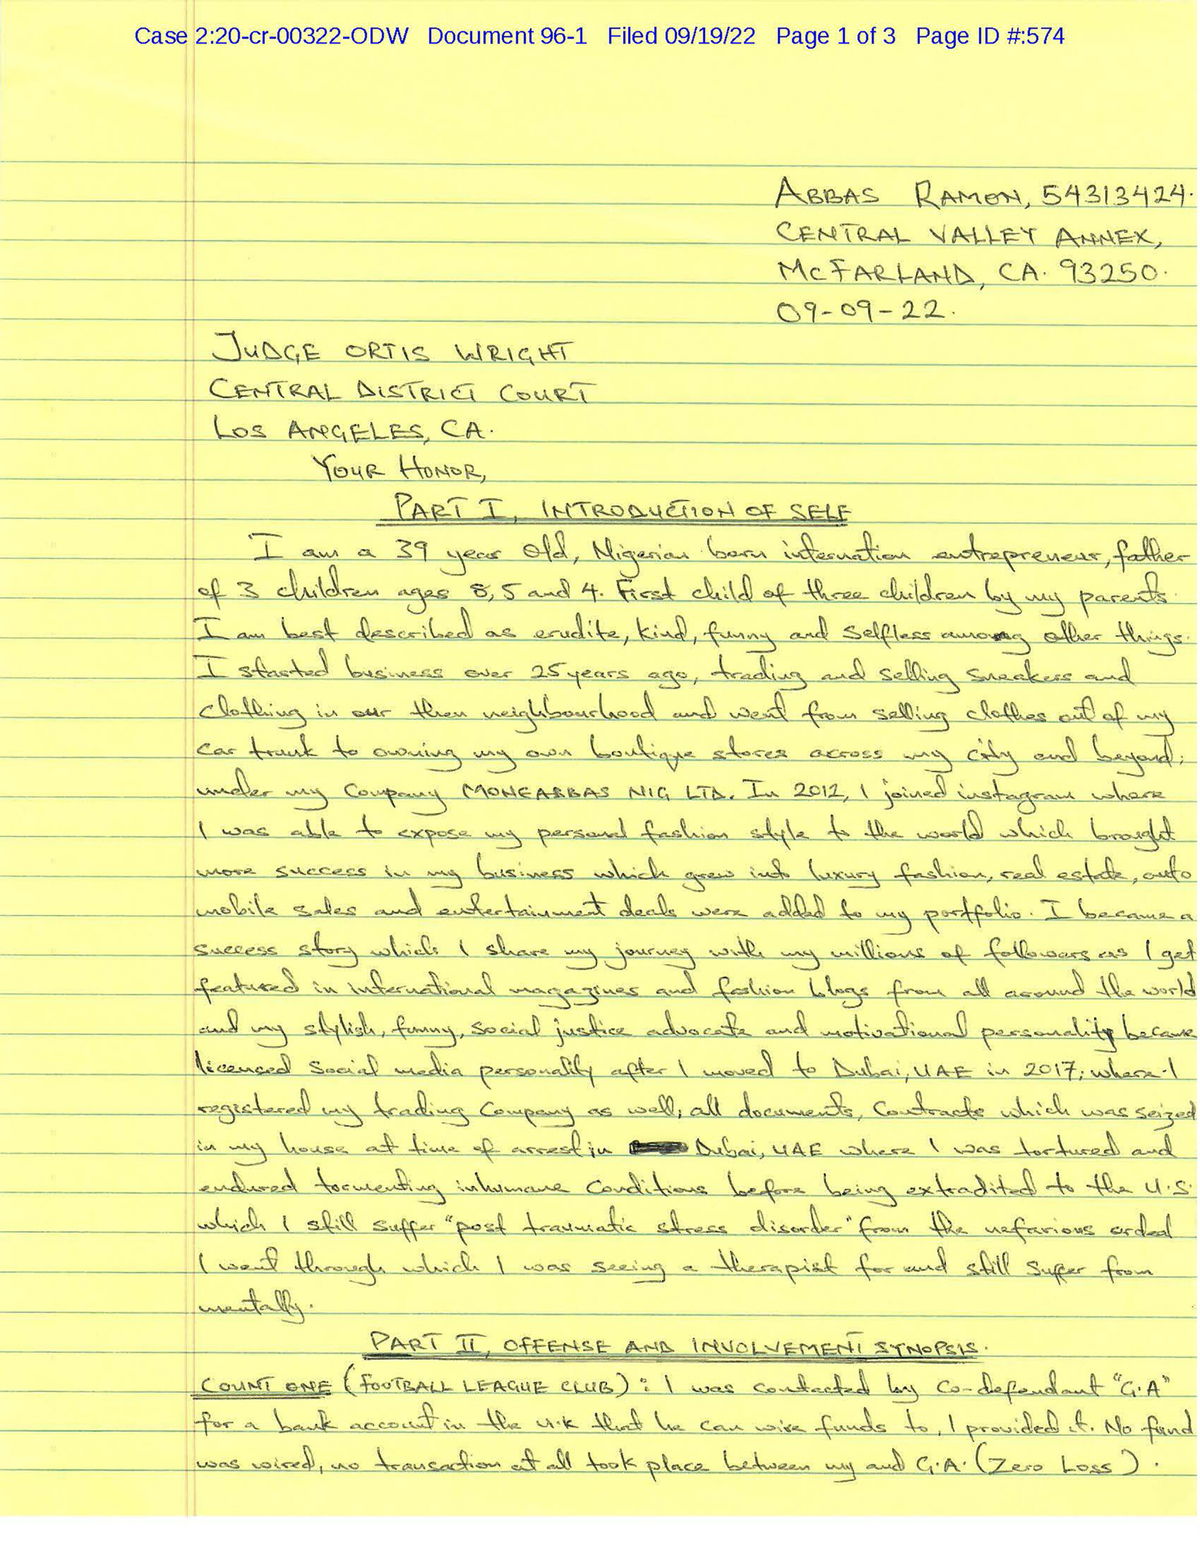 Case 2:20-cr-00322-ODW Document 96-1 Filed 09/19/22 Page 1 of 3 Page ID #:574
ABBAS RAMON, 54313424.
CENTRAL VALLEY ANNEX,
McFARLAND, CA. 93250.
09-09-22.
JUDGE ORTIS WRIGHT
CENTRAL DISTRICT COURT
LOS ANGELES, CA.
YOUR HONOR,
PART I, INTRODUCTION OF SELF
I am a 39 year old, Nigerian born internation entrepreneur, father
of 3 children ages 8, 5 and 4. First child of three children by my parents.
I am best described as erudite, kind, funny and selfless among other things.
I started business over 25 years ago, trading and selling sneakers and
clothing in our then neighbourhood and went from selling clothes out of my
car trunk to owning my own boutique stores across my city and beyond;
under my Company MONEABBAS NIG LTD. In 2012, I joined instagram where
I was able to expose my personal fashion style to the world which brought
more success in my business which grew into luxury fashion, real estate, auto
mobile sales and entertainment deals were added to my portfolio. I became a
success story which I share my journey with my millions of followers as I get
featured in international magazines and fashion blogs from all around the world
and my stylish, funny, social justice advocate and motivational personality became
licenced social media personality after I moved to Dubai, UAE in 2017; where I
registered my trading Company as well, all documents, Contracts which was seized
in my house at time of arrest in Dubai, UAE where I was tortured and
endured tormenting inhumane conditions before being extradited to the U.S.
which I still suffer "post traumatic stress disorder" from the nefarious ordeal
I went through which I was seeing a therapist for and still suffer from
mentally.
PART II, OFFENSE AND INVOLVEMENT SYNOPSIS.
COUNT ONE (FOOTBALL LEAGUE CLUB): I was contacted by Co-defendant "G.A"
for a bank account in the U.K that he can wire funds to, I provided it. No fund
was wired, no transaction at all took place between my and G.A. (Zero Loss).